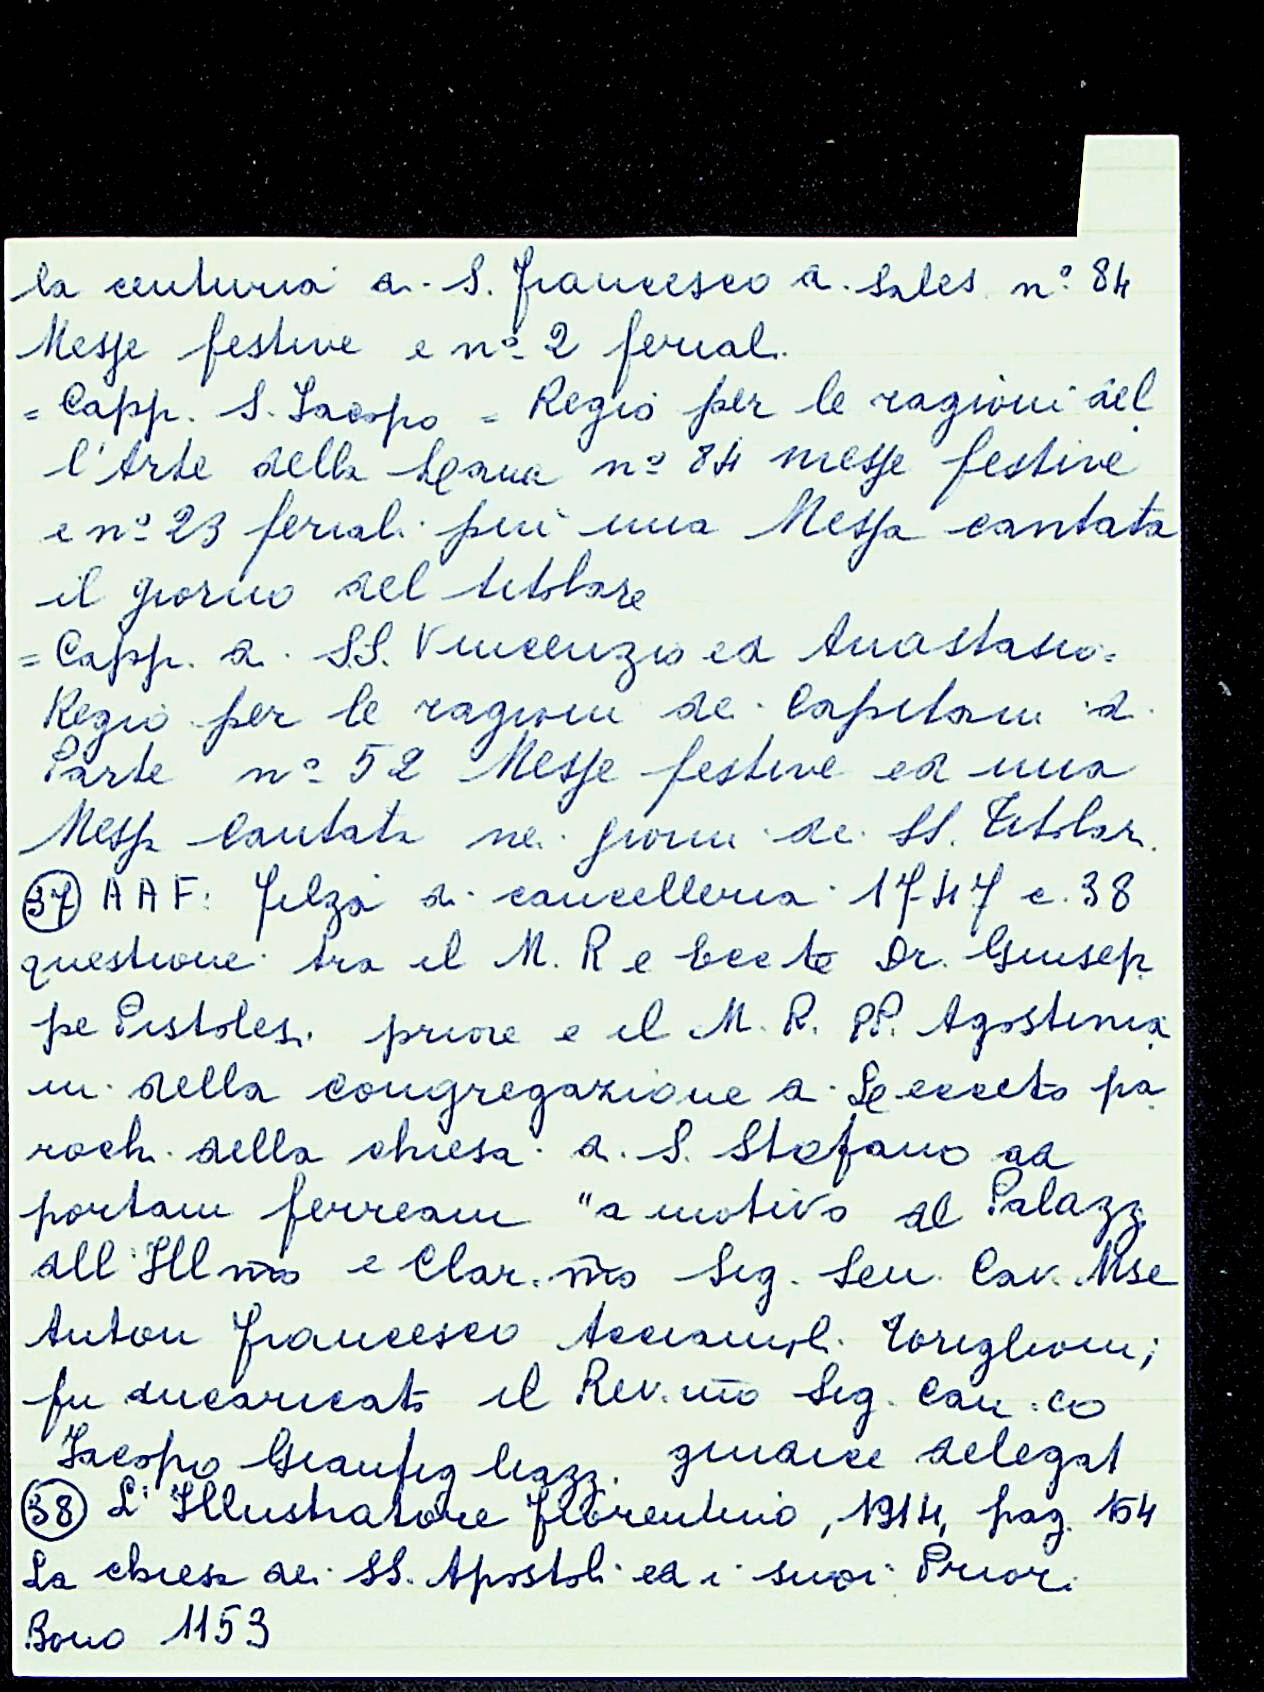 la centuria di S. Francesco di Sales nº 84
Messe festive e nº 2 feriali.
= Capp. S. Iacopo = Regio per le ragioni del
l'Arte della Lana nº 84 messe festive
e nº 23 feriali più una Messa cantata
il giorno del titolare
= Capp. di SS. Vincenzio ed Anastasio =
Regio per le ragioni dei Capitani di
Parte nº 52 Messe festive ed una
Messa Cantata nei giorni dei SS. Titolari.
(37) A A F: Filza di cancelleria 1747 c. 38
questione tra il M. R e Eccte Dr. Giusep
pe Pistolesi priore e il M. R. PP. Agostinia
ni della congregazione di Lecceto pa
rochi della chiesa di S. Stefano ad
portam ferream "a motivo del Palazz
dell'Illmo e Clar.mo Sig. Sen. Cav. Mse
Anton Francesco Acciaiuoli Toriglioni;
fu incaricato il Rev.mo Sig. Can.co
Iacopo Gianfigliazzi giudice delegat
(38) L'Illustratore Fiorentino, 1914, pag. 154
La chiesa dei SS. Apostoli ed i suoi Priori
Bono 1153